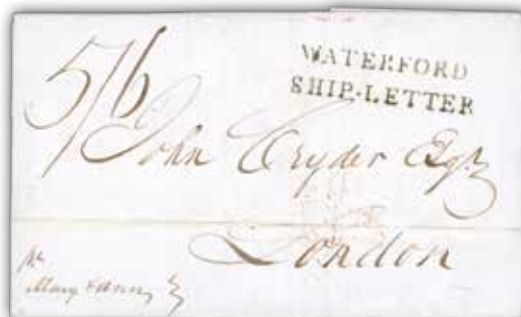 5/6
WATERFORD
SHIP-LETTER
John Cryder Esqr
London
pr
Mary